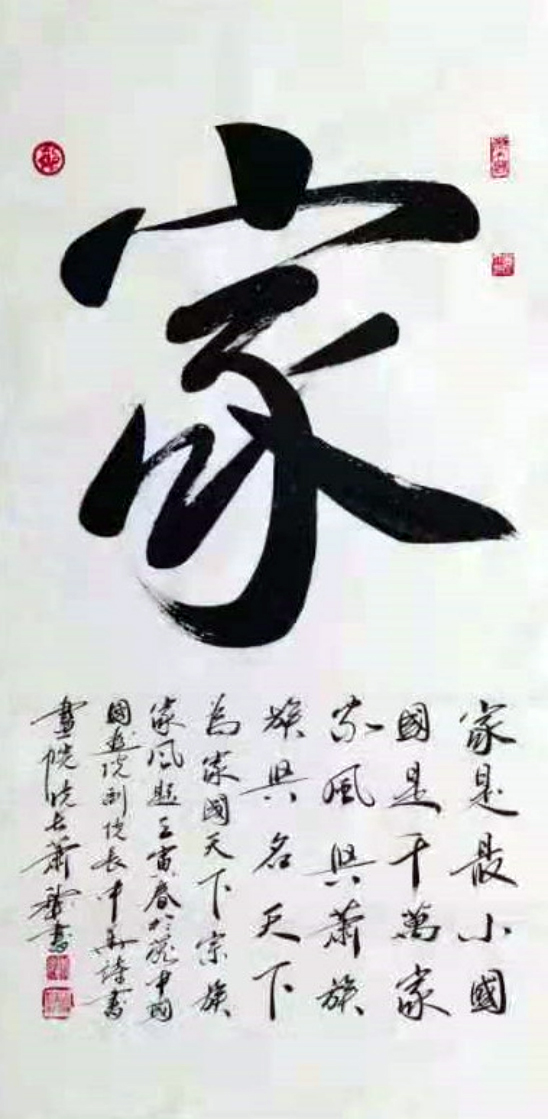 家
家是最小國
國是千萬家
家風興蕭族
族興名天下
為家國天下宗族
家風題壬寅春於中國
國畫院副院長中華詩書
畫院院長蕭書